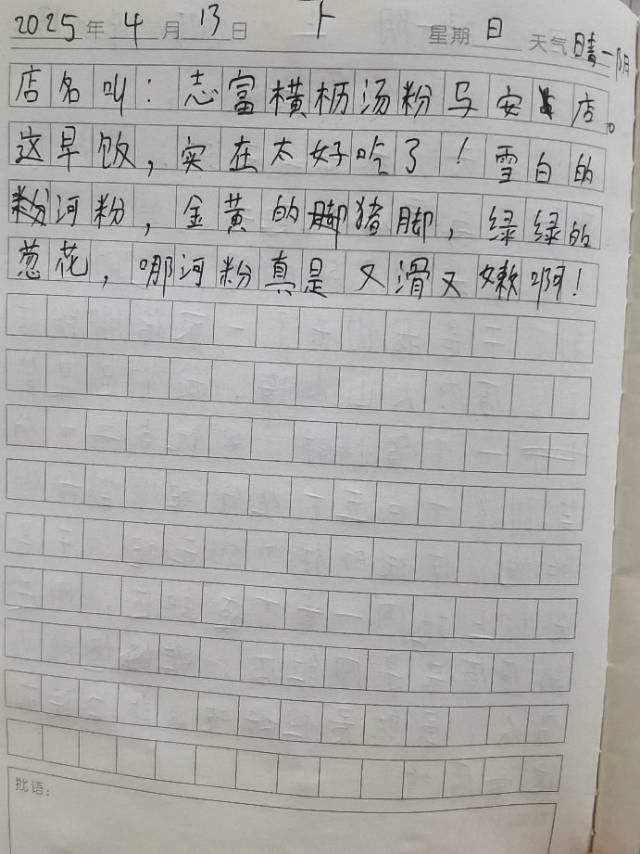 2025年4月13日 下 星期日 天气晴一阴
店名叫:志富横枥汤粉马安店。
这早饭,实在太好吃了!雪白的
粉河粉,金黄的脚猪脚,绿绿的
葱花,哪河粉真是又滑又嫩啊!
批语: